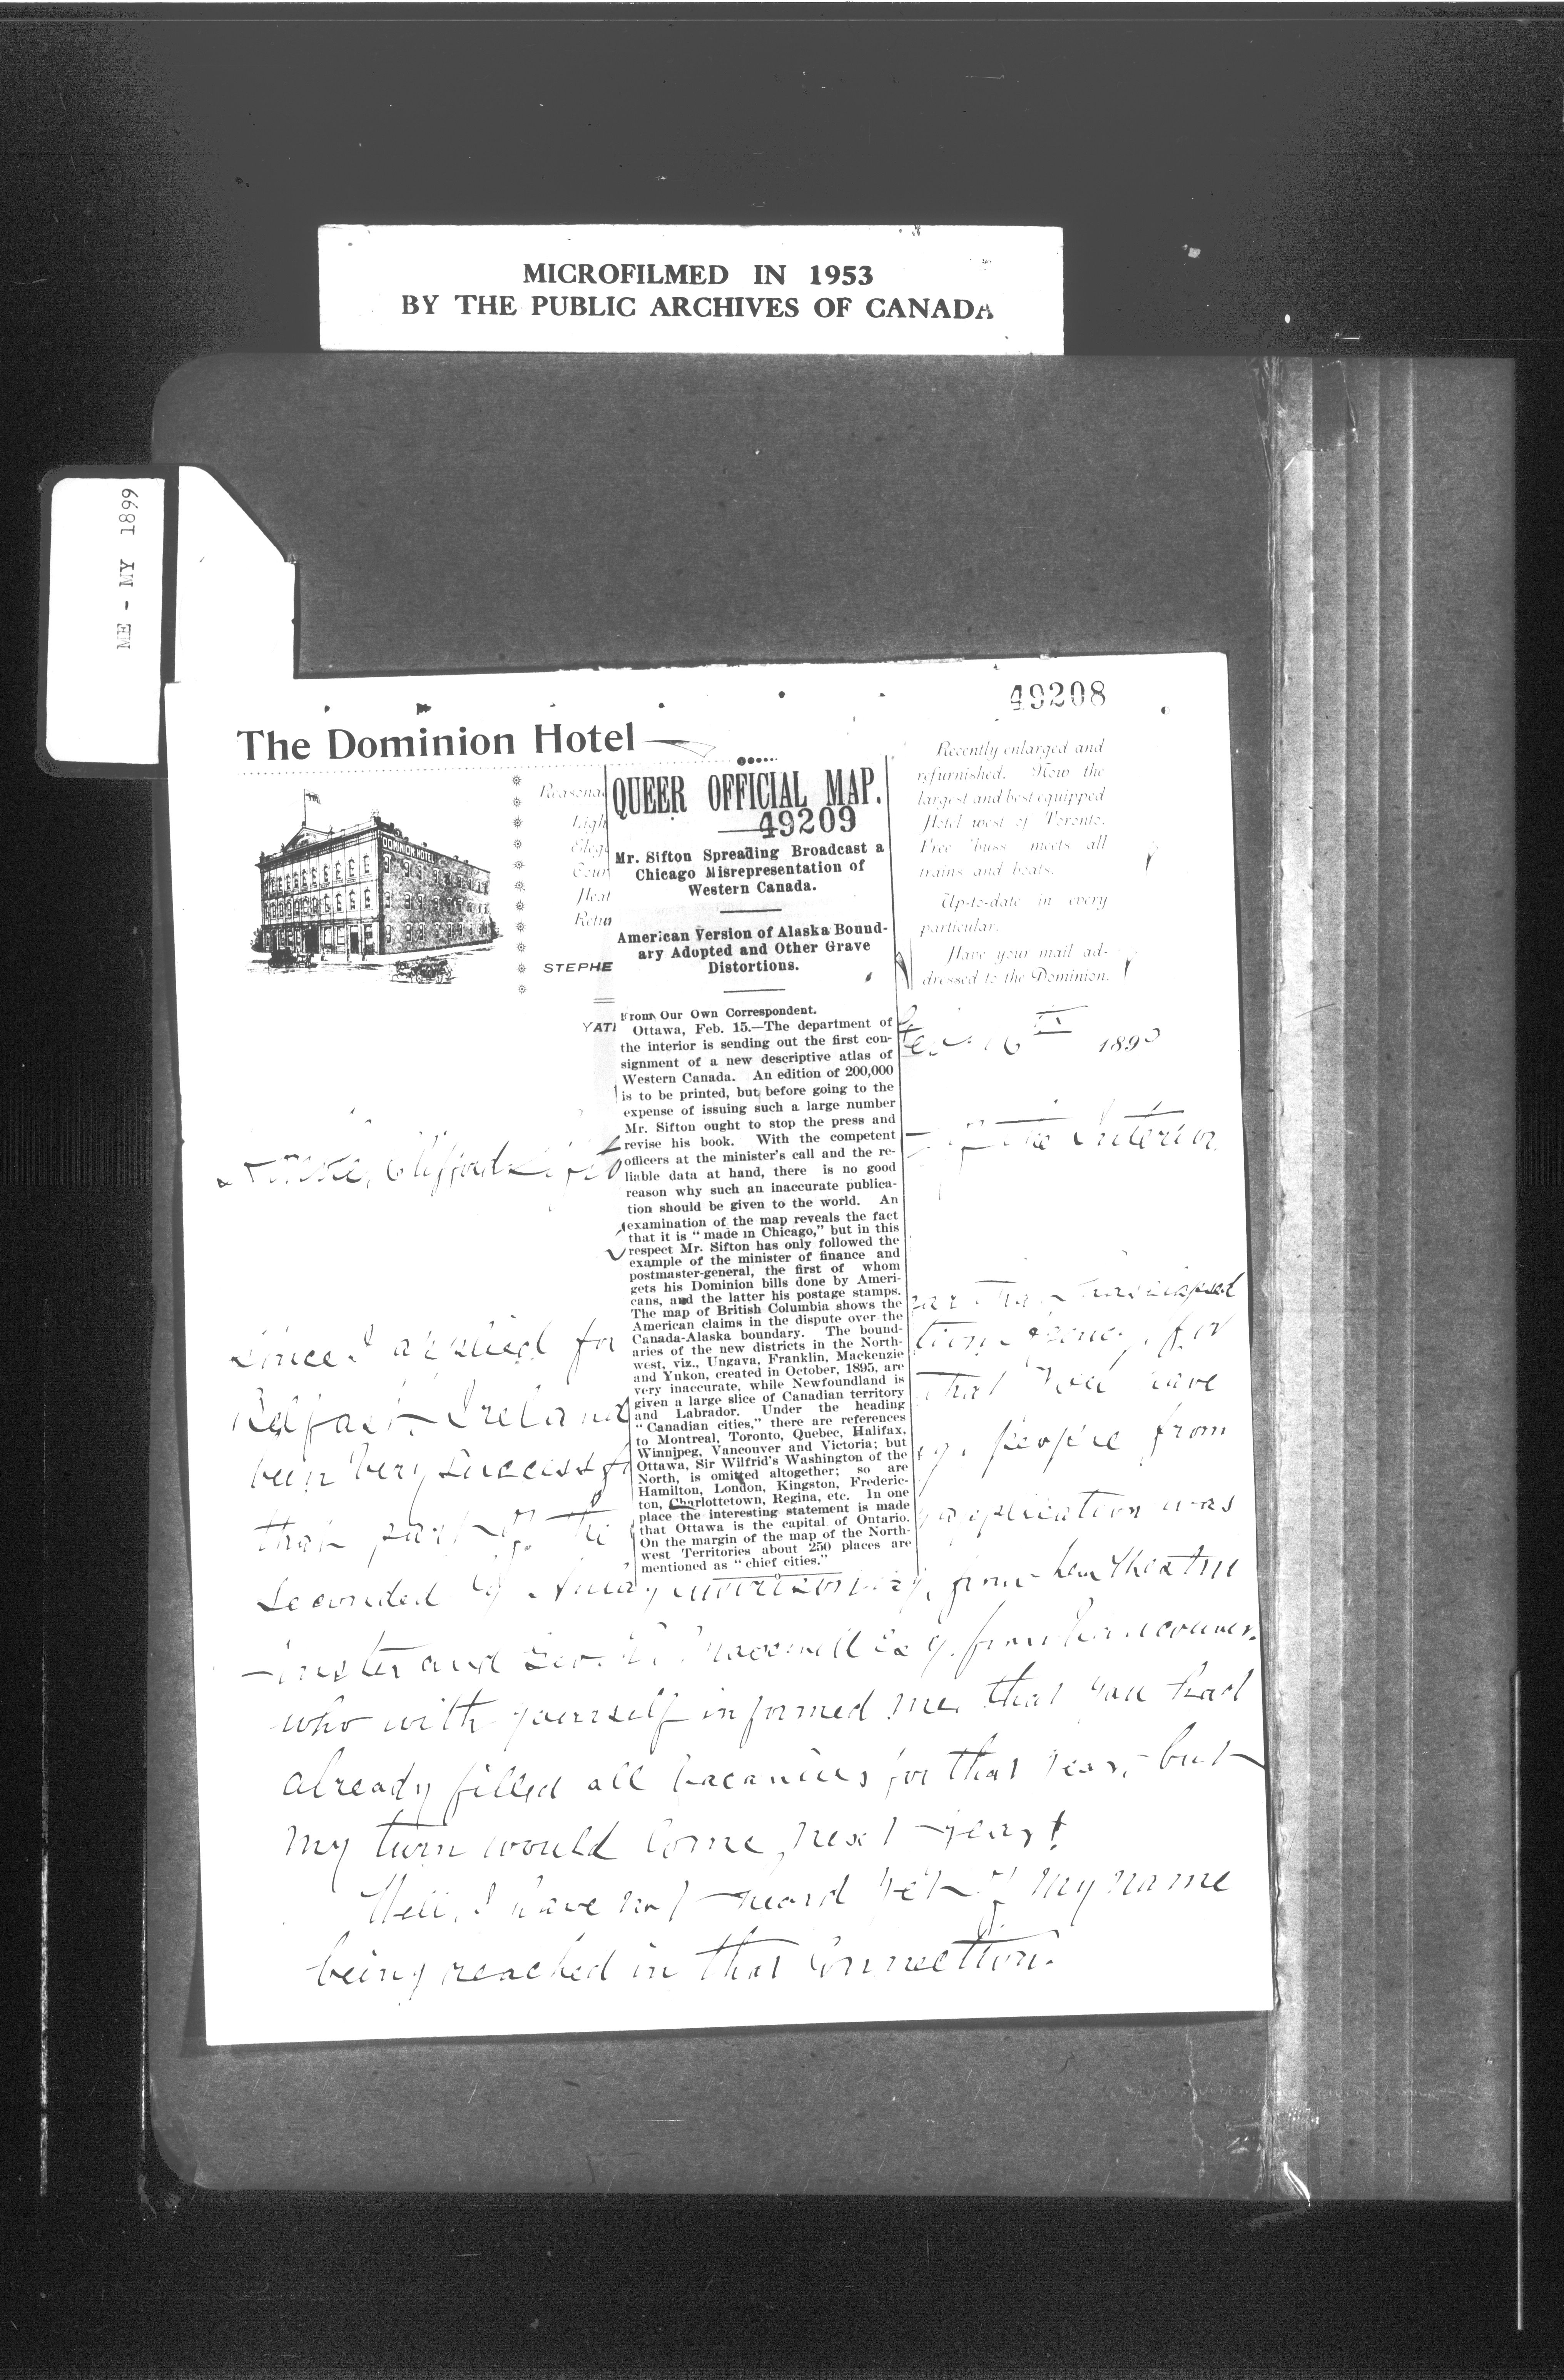 MICROFILMED IN 1953
BY THE PUBLIC ARCHIVES OF CANADA
ME - MY 1899
49208
The Dominion Hotel
DOMINION HOTEL
Reasona
Ligh
Eleg
Cour
Heat
Retu
STEPHE
YAT
Recently enlarged and
refurnished. Now the
largest and best equipped
Hotel west of Toronto.
Free 'buss meets all
trains and boats.
Up-to-date in every
particular.
Have your mail ad-
dressed to the Dominion.
QUEER OFFICIAL MAP.
49209
Mr. Sifton Spreading Broadcast a
Chicago Misrepresentation of
Western Canada.
American Version of Alaska Bound-
ary Adopted and Other Grave
Distortions.
From Our Own Correspondent.
Ottawa, Feb. 15.—The department of
the interior is sending out the first con-
signment of a new descriptive atlas of
Western Canada. An edition of 200,000
is to be printed, but before going to the
expense of issuing such a large number
Mr. Sifton ought to stop the press and
revise his book. With the competent
officers at the minister's call and the re-
liable data at hand, there is no good
reason why such an inaccurate publica-
tion should be given to the world. An
examination of the map reveals the fact
that it is "made in Chicago," but in this
respect Mr. Sifton has only followed the
example of the minister of finance and
postmaster-general, the first of whom
gets his Dominion bills done by Ameri-
cans, and the latter his postage stamps.
The map of British Columbia shows the
American claims in the dispute over the
Canada-Alaska boundary. The bound-
aries of the new districts in the North-
west, viz., Ungava, Franklin, Mackenzie
and Yukon, created in October, 1895, are
very inaccurate, while Newfoundland is
given a large slice of Canadian territory
and Labrador. Under the heading
"Canadian cities," there are references
to Montreal, Toronto, Quebec, Halifax,
Winnipeg, Vancouver and Victoria; but
Ottawa, Sir Wilfrid's Washington of the
North, is omitted altogether; so are
Hamilton, London, Kingston, Frederic-
ton, Charlottetown, Regina, etc. In one
place the interesting statement is made
that Ottawa is the capital of Ontario.
On the margin of the map of the North-
west Territories about 250 places are
mentioned as "chief cities."
16 189
Clifford the Interior
Since I applied for for
Belfast Ireland that you have
been very successf people from
that part of the application was
seconded by from
and Maxwell Esq. from Vancouver.
who with yourself informed me, that you had
already filled all vacancies for that year, but
my turn would come next year!
Well, I have not heard yet of my name
being reached in that Connection.